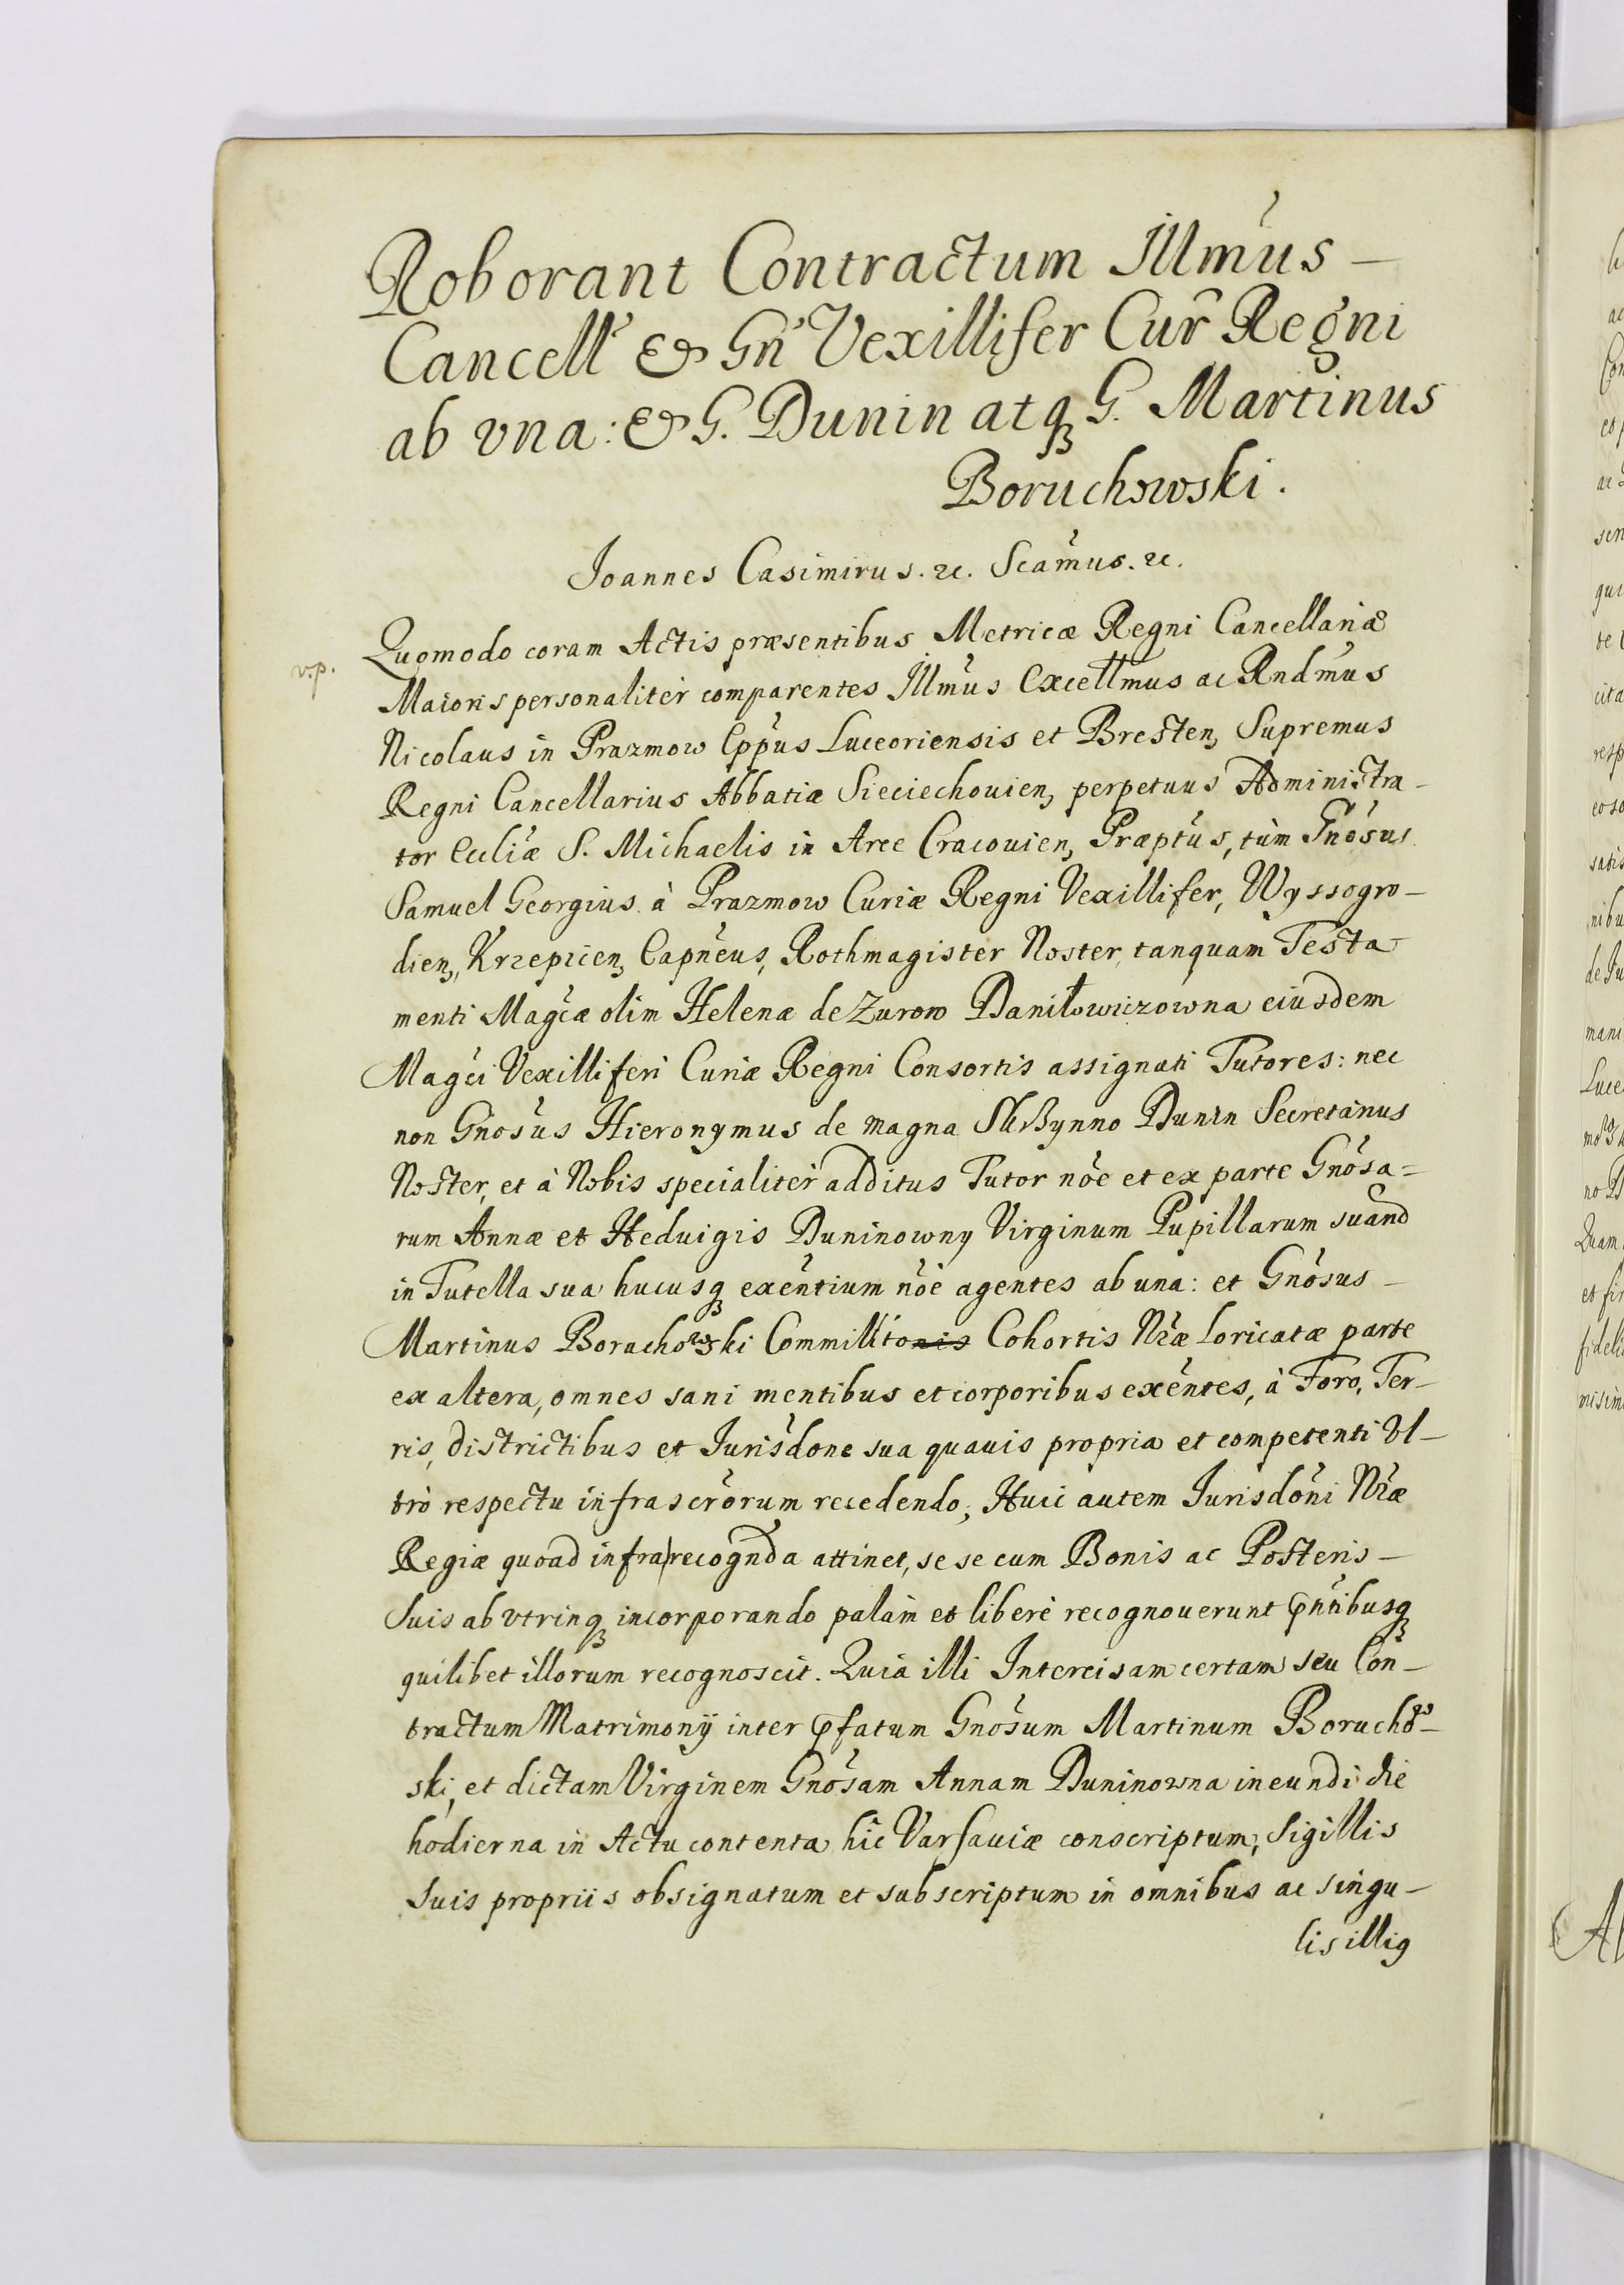 Roborant Contractum Illmus —
Cancell & Gn Vexillifer Cur Regni
ab vna: & G. Dunin atq G. Martinus
Boruchowski.
Joannes Casimirus. &c. Scamus. &c.
v.p.
Quomodo coram Actis præsentibus Metricæ Regni Cancellariæ
Maioris personaliter comparentes Illmus Excellmus ac Rndmus
Nicolaus in Prazmow Eppus Luceoriensis et Bresten, Supremus
Regni Cancellarius Abbatiæ Sieciechouien, perpetuus Administra-
tor Eccliæ S. Michaelis in Arce Cracouien, Præptus, tùm Gnosus
Samuel Georgius à Prazmow Curiæ Regni Vexillifer, Wyssogro-
dien, Krzepicen, Capneus, Rothmagister Noster, tanquam Testa-
menti Magcæ olim Helenæ de Zurow Daniłowiczowna eiusdem
Magci Vexilliferi Curiæ Regni Consortis assignati Tutores: nec
non Gnosus Hieronymus de magna Skrzynno Dunin Secretarius
Noster, et à Nobis specialiter additus Tutor nöe et ex parte Gnosa=
rum Annæ et Heduigis Duninowny Virginum Pupillarum suarnd
in Tutella sua hucusq exentium nöe agentes ab una: et Gnosus —
Martinus Borachowski Commilitonis Cohortis Nræ Loricatæ parte
ex altera, omnes sani mentibus et corporibus exentes, à Foro, Ter-
ris, districtibus et Jurisdone sua quauis propria et competenti Vl-
trò respectu infrascrorum recedendo, Huic autem Jurisdoni Nræ
Regiæ quoad infra|recognda attinet, se se cum Bonis ac Posteris —
Suis ab vtrinq incorporando palam et liberè recognouerunt pntibusq
quilibet illorum recognoscit. Quia illi Intercisam certam seu Con-
tractum Matrimonÿ inter pfatum Gnosum Martinum Boruchow-
ski, et dictam Virginem Gnosam Annam Duninowna ineundi die
hodierna in Actu contenta hic Varsauiæ conscriptum, Sigillis
Suis propriis obsignatum et subscriptum in omnibus ac singu-
lis illig